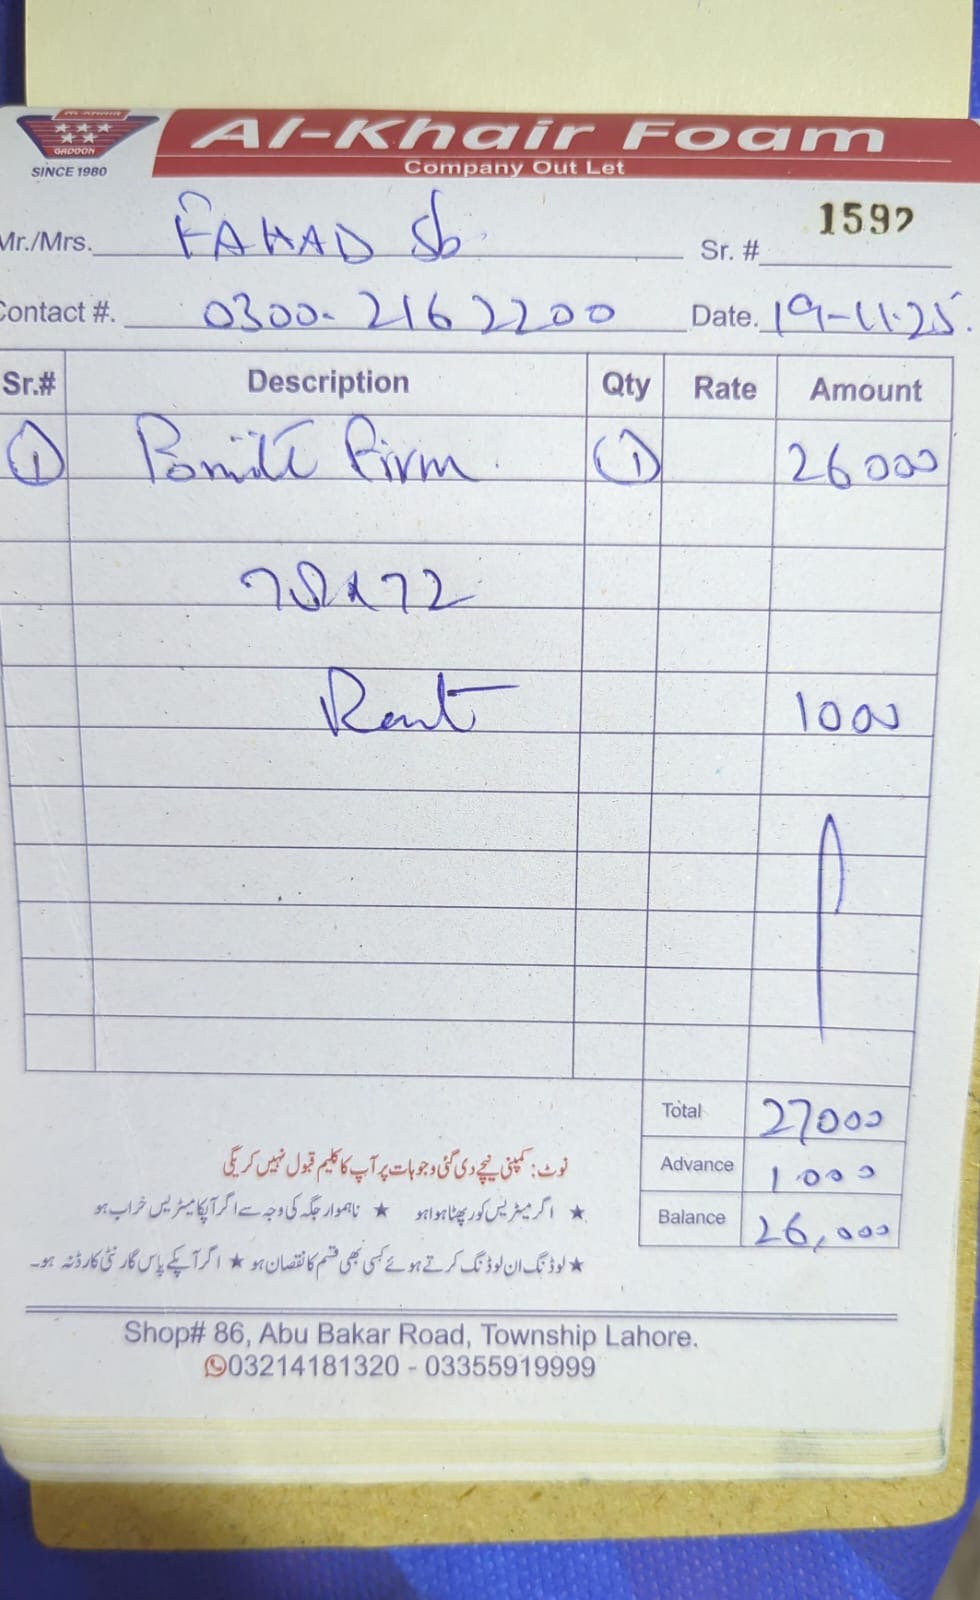 AL-KHAIR
GADOON
SINCE 1980
Al-Khair Foam
Company Out Let
Mr./Mrs. FAHAD Sb
Sr. # 1592
Contact #. 0300-2162200 Date. 19-11-25
Sr.# Description Qty Rate Amount
1 Firm 1 26000
78x72
Rent 1000
Total 27000
Advance 1000
Balance 26,000
نوٹ: کمپنی نیچے دی گئی وجوہات پر آپ کا کلیم قبول نہیں کریگی
★ اگر میٹریس کور پھٹا ہوا ہو ★ ناہموار جگہ کی وجہ سے اگر آپکا میٹریس خراب ہو
★ لوڈنگ ان لوڈنگ کرتے ہوئے کسی بھی قسم کا نقصان ہو ★ اگر آپکے پاس گارنٹی کارڈ نہ ہو۔
Shop# 86, Abu Bakar Road, Township Lahore.
03214181320 - 03355919999